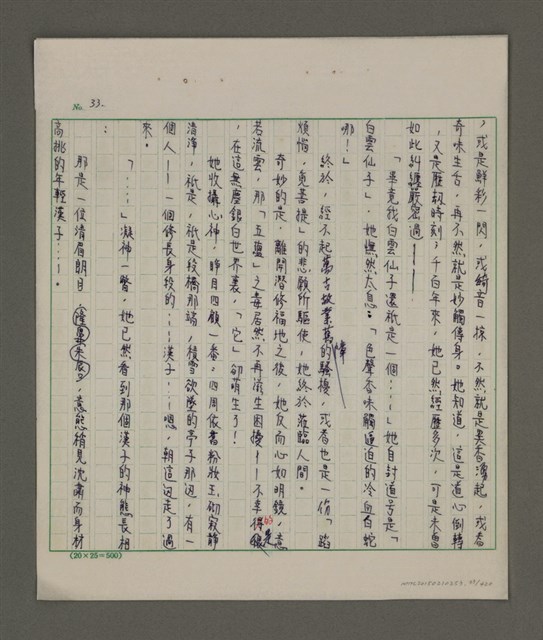 No. 33.
，或是鮮彩一閃，或綺音一探，不然就是異香湧起，或者
奇味生舌，再不然就是妙觸傳身。她知道，這是道心倒轉
，又是歷劫時刻；千百年來，她已然經歷多次，可是未曾
如此糾纏嚴密過——
「畢竟我白雲仙子還祇是一個……」她自討道号是「
白雲仙子」，她憮然太息：「色聲香味觸連迫的冷血白蛇
哪！」
終於，經不起業障的騷擾，或者也是一份「諂
煩惱，覓菩提」的悲願所驅使，她終於蒞臨人間。
奇妙的是，離開潛修福地之後，她反而心如明鏡，意
若流雲，那「五蘊」之毒居然不再滋生困擾——不幸的是
，在這無塵銀白世界裏，「它」卻萌生了！
她收攝心神，睜目四顧一番；四周依舊粉妝玉砌寂靜
清淨，祇是，祇是段橋那端，積雪欲墜的亭子那邊，有一
個人——一個修長身段的……漢子……嗯，朝這邊走了過
來。
「……」凝神一瞥，她已然看到那個漢子的神態長相
：
那是一位清眉朗目，隆鼻，意態稍見沈肅而身材
高挑的年輕漢子……。
(20×25=500)